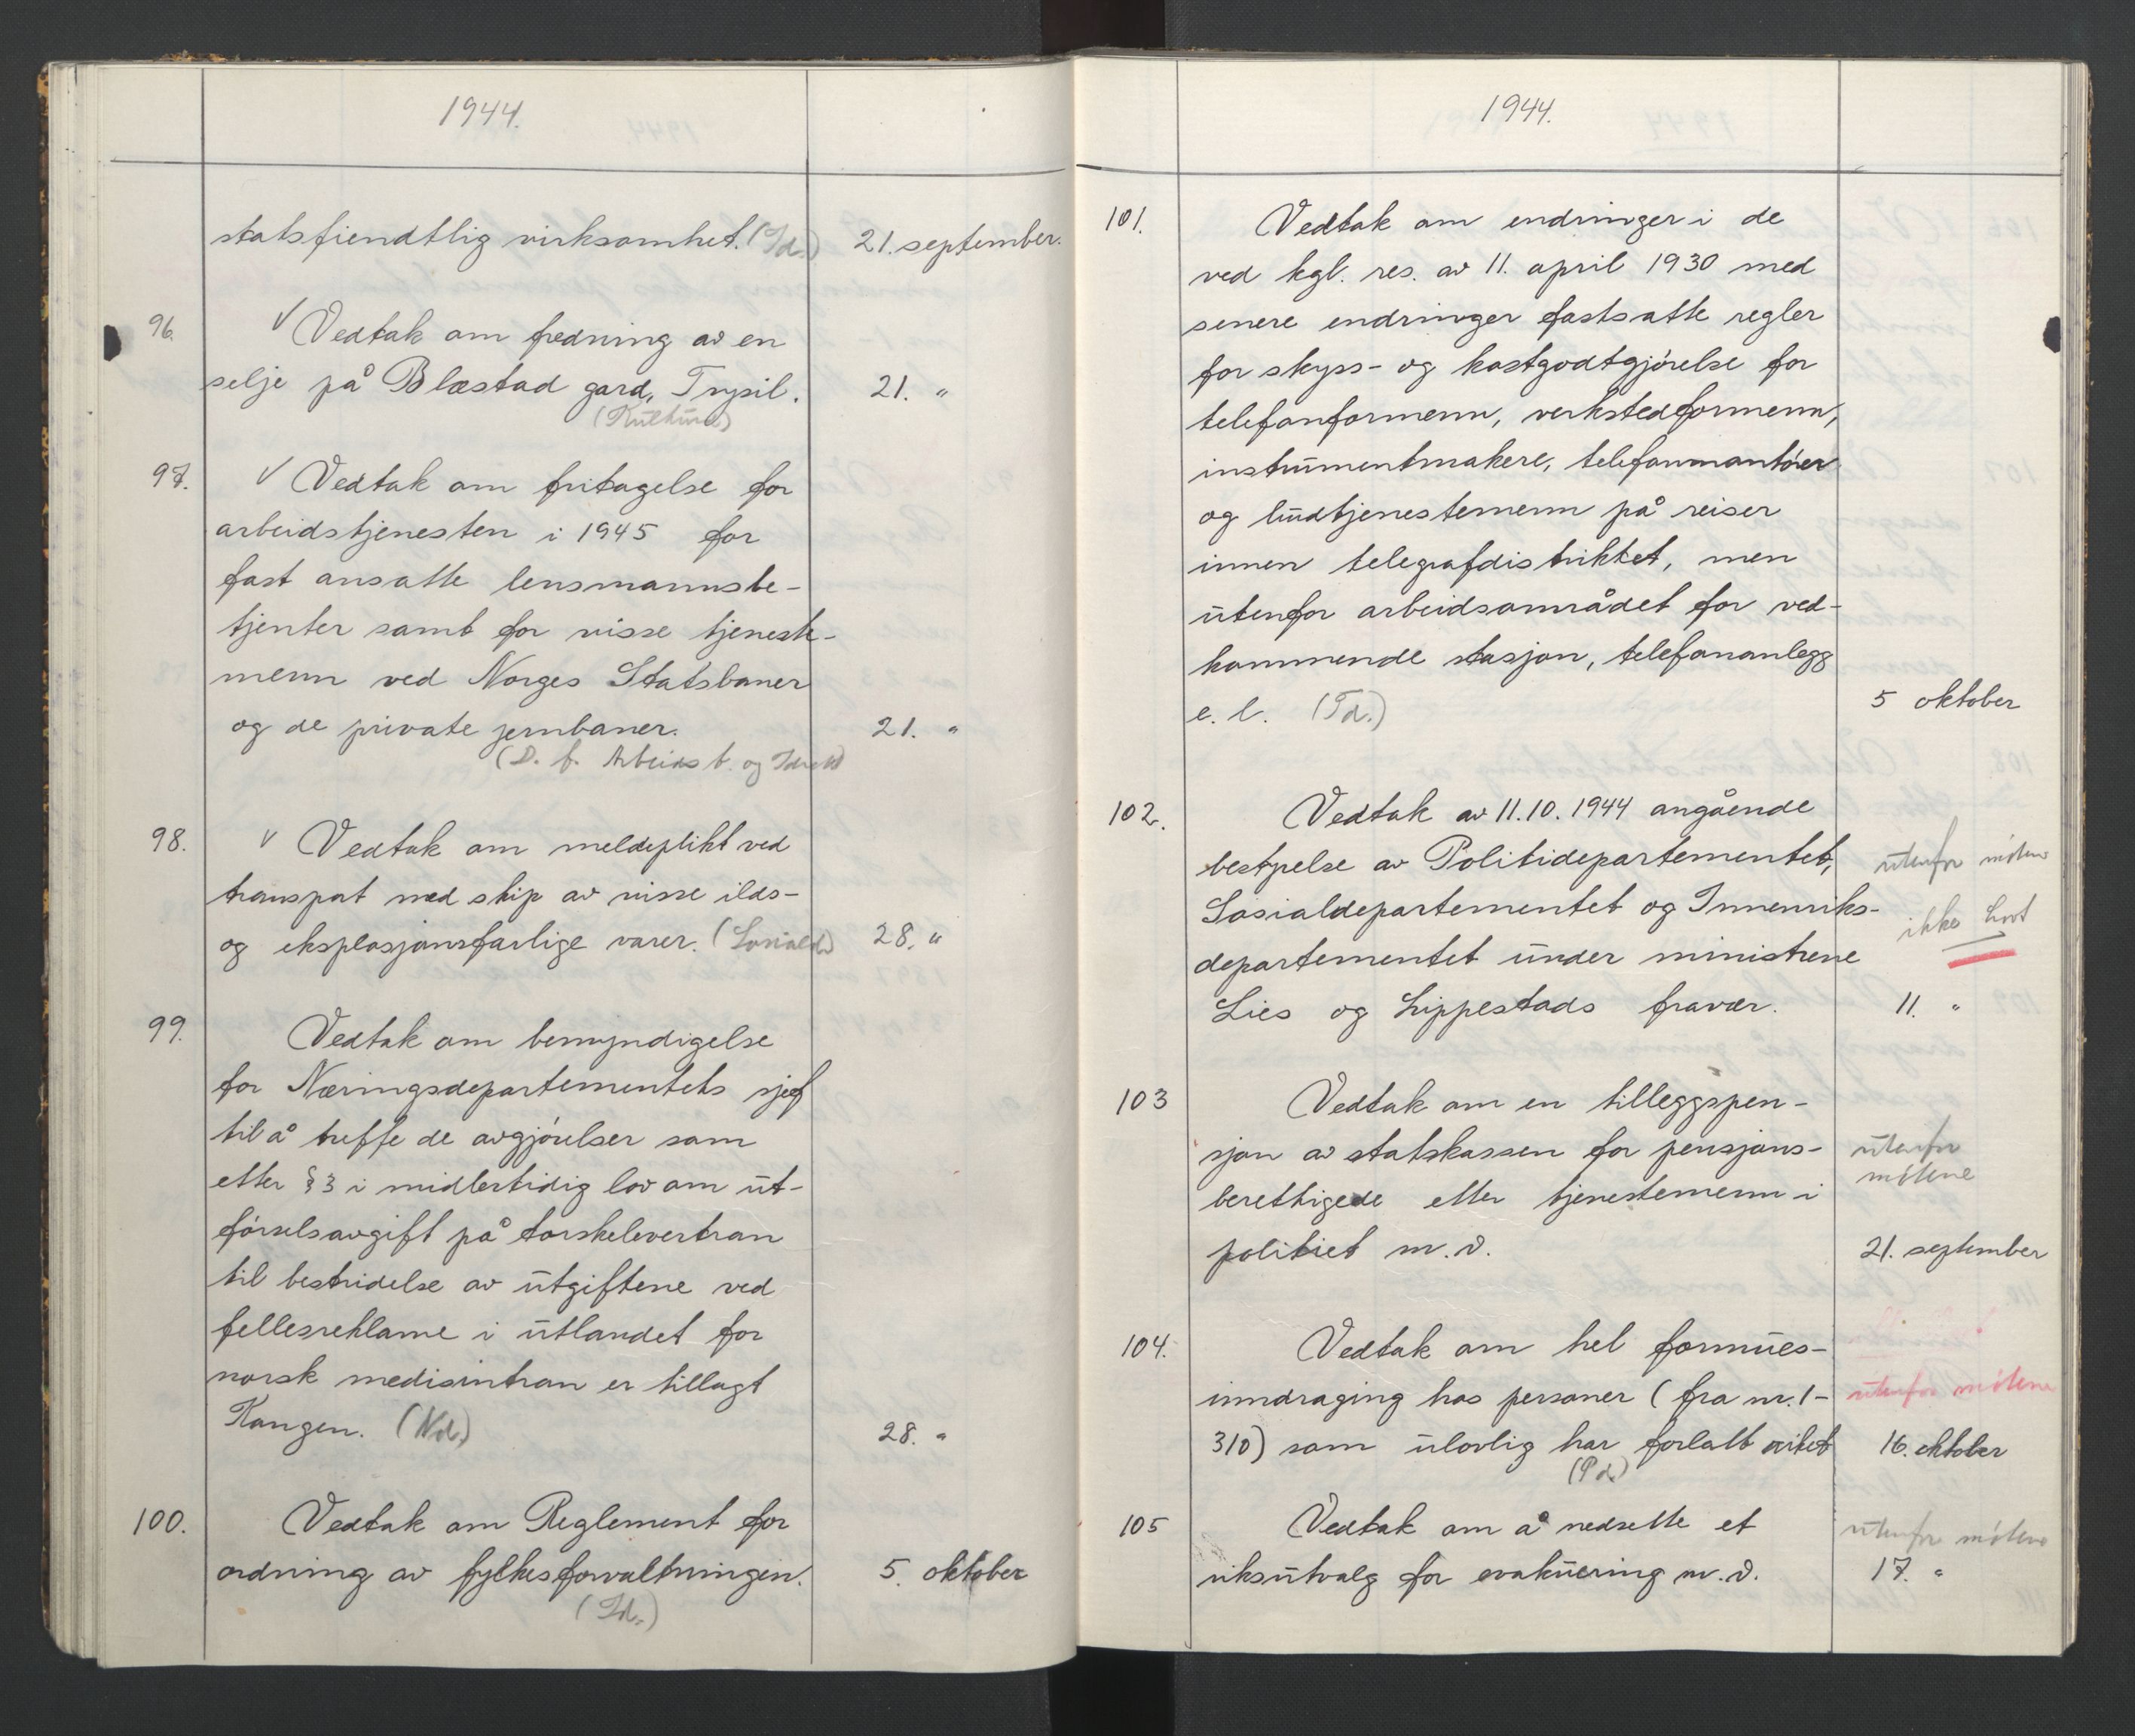 1944.
statsfiendtlig virksomhet. (Id.) 21. september.
96. √ Vedtak om fredning av en
selje på Blæstad gard, Trysil. 21. "
(Kulturd.)
97. √ Vedtak om fritagelse for
arbeidstjenesten i 1945 for
fast ansatte lensmannsbe-
tjenter samt for visse tjeneste-
menn ved Norges Statsbaner
og de private jernbaner. 21. "
(D. f. Arbeidst. og Idrett)
98. √ Vedtak om meldeplikt ved
transport med skip av visse ilds-
og eksplosjonsfarlige varer. (Sosiald.) 28. "
99. Vedtak om bemyndigelse
for Næringsdepartementets sjef
til å treffe de avgjørelser som
etter § 3 i midlertidig lov om ut-
førselsavgift på torskelevertran
til bestridelse av utgiftene ved
fellesreklame i utlandet for
norsk medisintran er tillagt
Kongen. (Nd.) 28. "
100. Vedtak om Reglement for
ordning av fylkesforvaltningen. 5. oktober
(Id.)
1944.
101. Vedtak om endringer i de
ved kgl. res. av 11. april 1930 med
senere endringer fastsatte regler
for skyss- og kostgodtgjørelse for
telefonformenn, verkstedformenn,
instrumentmakere, telefonmontører
og budtjenestemenn på reiser
innen telegrafdistriktet, men
utenfor arbeidsområdet for ved-
kommende stasjon, telefonanlegg
e. l. (Td.) 5 oktober
102. Vedtak av 11.10.1944 angående
bestyelse av Politidepartementet, utenfor møtene
Sosialdepartementet og Innenriks- ikke
departementet under ministrene
Lies og Lippestads fravær. 11. "
103 Vedtak om en tilleggspen-
sjon av statskassen for pensjons- utenfor
berettigede etter tjenestemenn i møtene
politiet m.v. 21. september
104. Vedtak om hel formues-
inndraging hos personer (fra nr. 1- utenfor møtene
310) som ulovlig har forlatt riket 16. oktober
(Pd.)
105 Vedtak om å nedsette et utenfor møtene
riksutvalg for evakuering m.v. 17. "